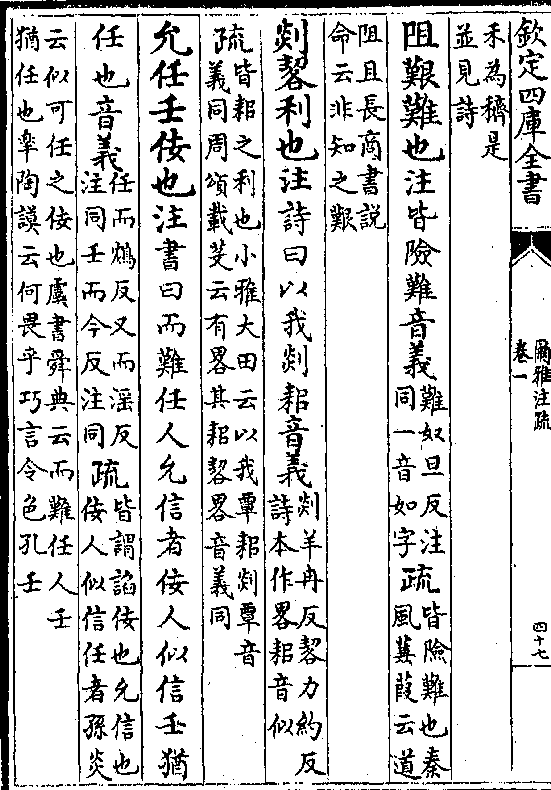 欽定四庫全書
爾雅注疏
卷一
四十七
禾為穧是
並見詩
阻艱難也注皆險難音義難奴旦反注
同一音如字疏皆險難也秦
風蒹葭云道
阻且長商書説
命云非知之艱
剡䂮利也注詩曰以我剡耜音義剡羊冉反䂮力約反
詩本作畧耜音似
疏皆耜之利也小雅大田云以我覃耜剡覃音
義同周頌載芟云有畧其耜䂮畧音義同
允任壬佞也注書曰而難任人允信者佞人似信壬猶
任也音義任而鴆反又而淫反
注同壬而今反注同疏皆謂諂佞也允信也
佞人似信任者孫炎
云似可任之佞也虞書舜典云而難任人壬
猶任也臯陶謨云何畏乎巧言令色孔壬